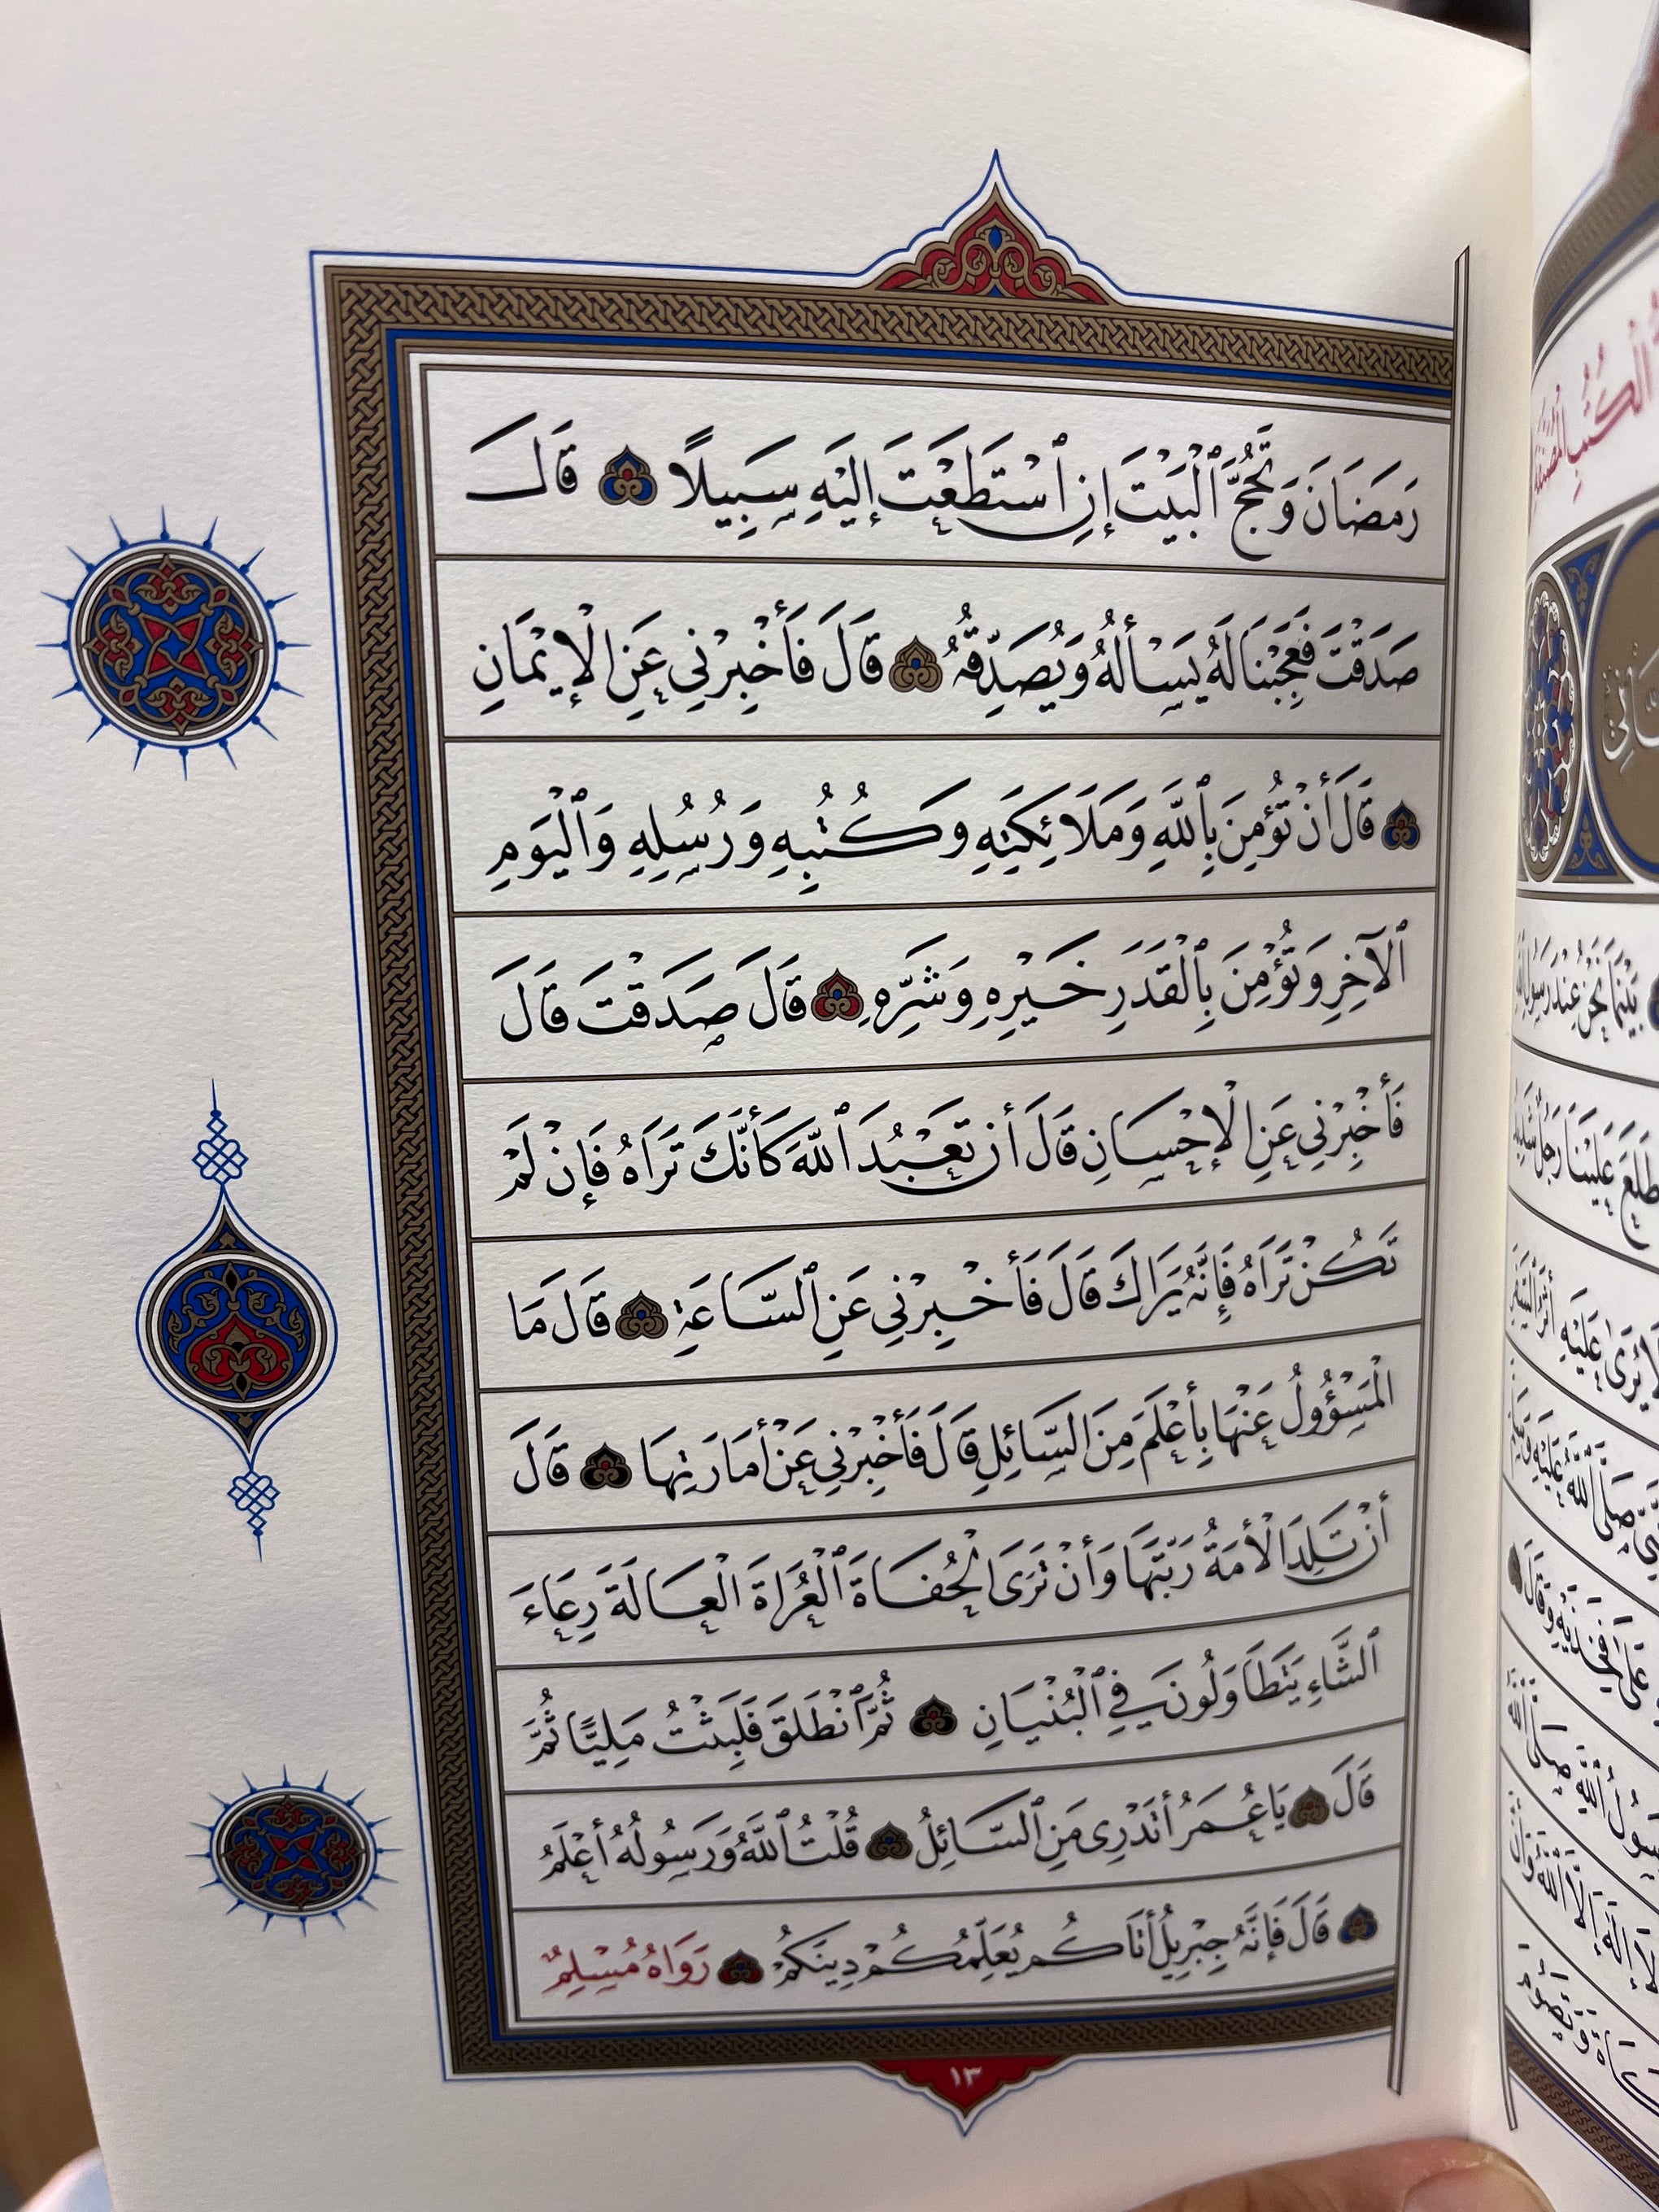 رَمَضَانَ وَتَحُجَّ ٱلْبَيْتَ إِنِ ٱسْتَطَعْتَ إِلَيْهِ سَبِيلًا قَالَ
صَدَقْتَ فَعَجِبْنَا لَهُ يَسْأَلُهُ وَيُصَدِّقُهُ قَالَ فَأَخْبِرْنِي عَنِ الْإِيْمَانِ
قَالَ أَنْ تُؤْمِنَ بِٱللَّهِ وَمَلَائِكَتِهِ وَكُتُبِهِ وَرُسُلِهِ وَٱلْيَوْمِ
ٱلْآخِرِ وَتُؤْمِنَ بِٱلْقَدَرِ خَيْرِهِ وَشَرِّهِ قَالَ صَدَقْتَ قَالَ
فَأَخْبِرْنِي عَنِ الْإِحْسَانِ قَالَ أَنْ تَعْبُدَ ٱللَّهَ كَأَنَّكَ تَرَاهُ فَإِنْ لَمْ
تَكُنْ تَرَاهُ فَإِنَّهُ يَرَاكَ قَالَ فَأَخْبِرْنِي عَنِ ٱلسَّاعَةِ قَالَ مَا
الْمَسْؤُولُ عَنْهَا بِأَعْلَمَ مِنَ السَّائِلِ قَالَ فَأَخْبِرْنِي عَنْ أَمَارَتِهَا قَالَ
أَنْ تَلِدَ الْأَمَةُ رَبَّتَهَا وَأَنْ تَرَى الْحُفَاةَ ٱلْعُرَاةَ الْعَالَةَ رِعَاءَ
ٱلشَّاءِ يَتَطَاوَلُونَ فِي ٱلْبُنْيَانِ ثُمَّ ٱنْطَلَقَ فَلَبِثْتُ مَلِيًّا ثُمَّ
قَالَ يَا عُمَرُ أَتَدْرِي مَنِ ٱلسَّائِلُ قُلْتُ ٱللَّهُ وَرَسُولُهُ أَعْلَمُ
قَالَ فَإِنَّهُ جِبْرِيلُ أَتَاكُمْ يُعَلِّمُكُمْ دِينَكُمْ رَوَاهُ مُسْلِمٌ
١٣